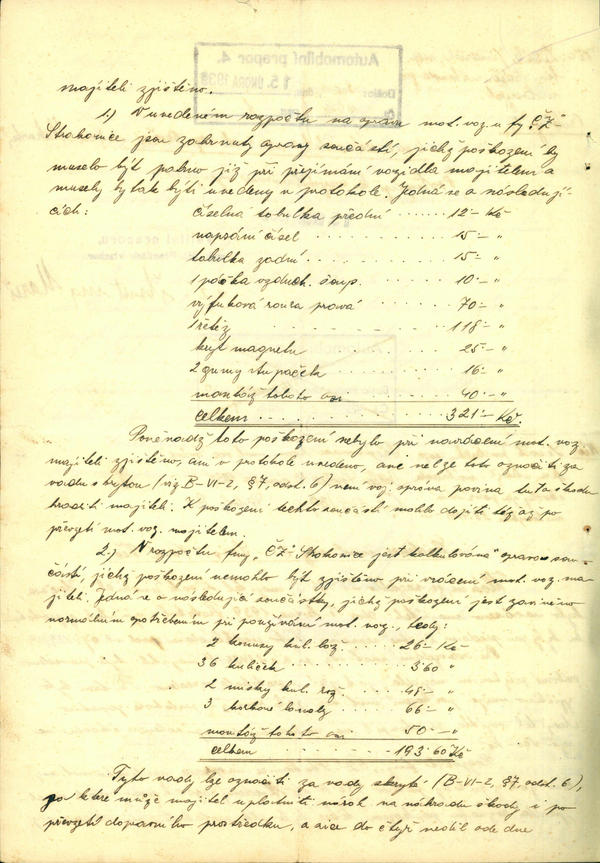 Automobilní prapor 4.
15. ÚNORA 1938
Došlo:
majiteli zjištěno.
1.) V uvedeném rozpočtu na opravu mot. voz. u fy „ČZ"
Strakonice jsou zahrnuty opravy součástí, jichž poškození by
muselo být patrno již při přejímání vozidla majitelem a
musely by tak býti uvedeny v protokole. Jedná se o následují-
cích:
číselna tabulka přední ...... 12.- Kč
napsání čísel ...... 15.- "
tabulka zadní ...... 15.- "
1 páčka vzduch. šoup. ...... 10.- "
výfuková roura pravá ...... 70.- "
1 řetěz ...... 118.- "
kryt magnetu ...... 25.- "
2 gumy stupaček ...... 16.- "
montáž tohoto asi ...... 40.- "
celkem ...... 321.- Kč.
Poněvadž toto poškození nebylo při navrácení mot. voz.
majiteli zjištěno, ani v protokole uvedeno, ané nelze toto označiti za
vadu skrytou (viz B-VI-2, §7, odst. 6) není voj. správa povina tuto škodu
hraditi majiteli. K poškození těchto součástí mohlo dojíti též až po
převzetí mot. voz. majitelem.
2.) V rozpočtu firmy „ČZ" Strakonice jest kalkulována oprava sou-
částí, jichž poškození nemohlo být zjištěno při vrácení mot. voz. ma-
jiteli. Jedná se o následující součástky, jichž poškození jest zaviněno
normálním opotřebením při používání mot. voz., tedy:
2 konusy kul. lož. ...... 26.- Kč
36 kuliček ...... 3.60 "
2 misky kul. loz. ...... 48.- "
3 korkové kroužky ...... 66.- "
montáž tohoto asi ...... 50.- "
celkem ...... 193.60 Kč
Tyto vady lze označiti za vady skryté (B-VI-2, §7, odst. 6),
za které může majitel uplatniti nárok na náhradu škody i po
převzetí dopravního prostředku, a sice do čtyř neděl ode dne